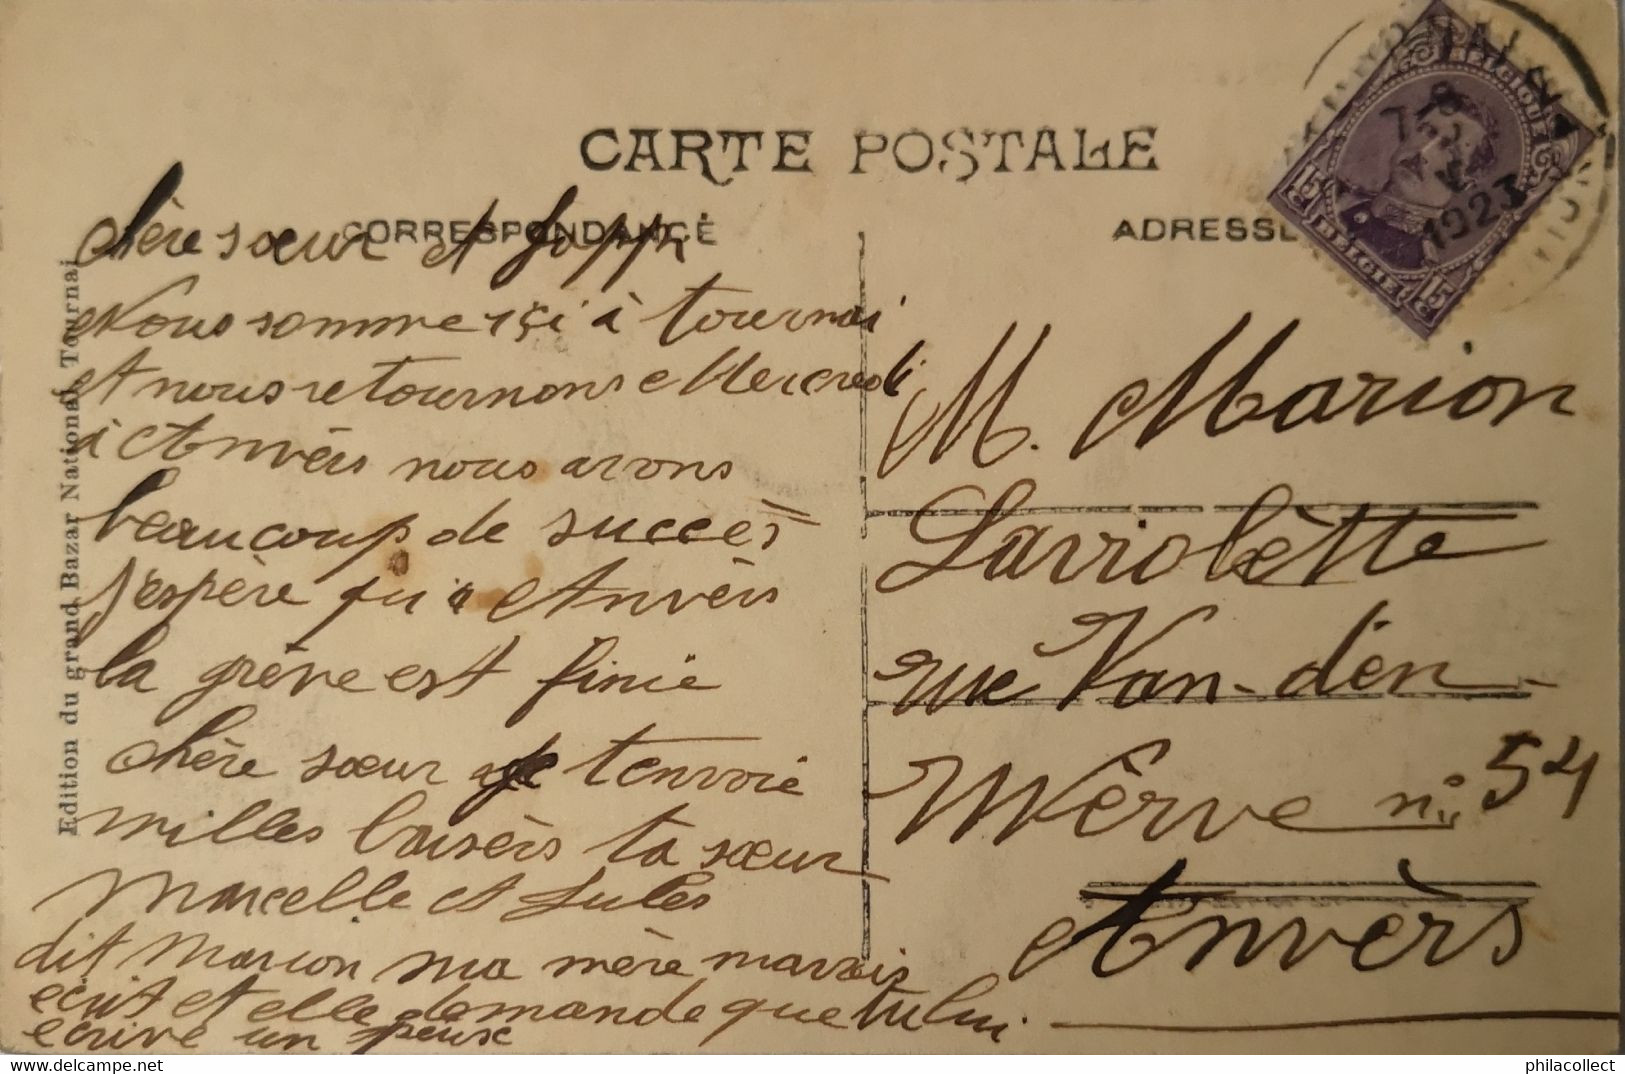 CARTE POSTALE
CORRESPONDANCE
ADRESSE
Edition du grand Bazar National, Tournai
BELGIQUE
BELGIE
15 c
15 c
1923
chère sœur et
Nous somme içi à tournai
et nous retournons Mercredi
à Anvèrs nous avons
beaucoup de succès
j'espère qu'a Anvèrs
la grève est finie
chère sœur je tenvoie
milles baisèrs ta sœur
Marcelle et Jules
dit Marion ma mère mavais
écrit et elle demande que tu lui
écrive un peux
M. Marion
Laviolètte
rue Van-den
Wêrve n° 54
Anvèrs
philacollect